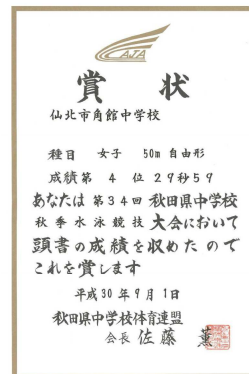 AJA
賞状
仙北市角館中学校
種目 女子 50m 自由形
成績第 4 位 29秒59
あなたは第34回 秋田県中学校
秋季水泳競技 大会において
頭書の成績を収めたので
これを賞します
平成30年9月1日
秋田県中学校体育連盟
会長 佐藤 薫